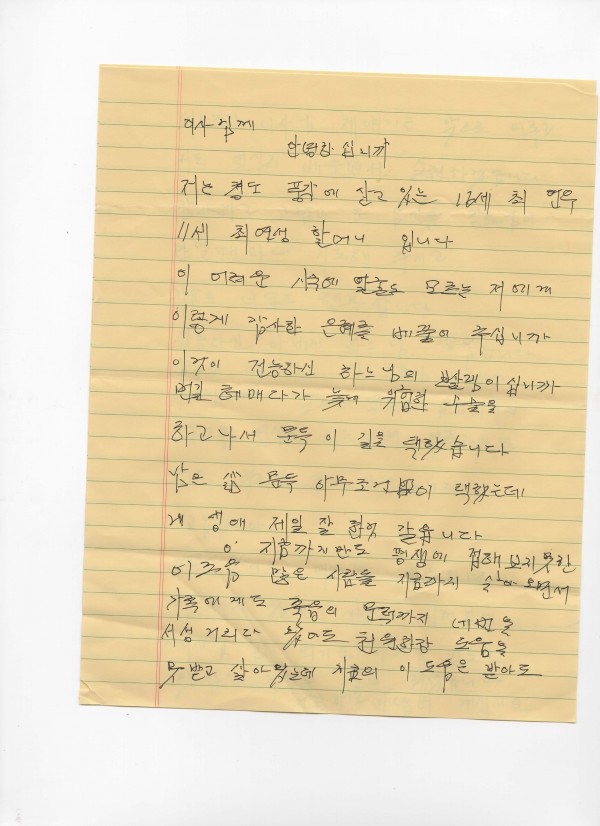 이사님께
안녕하십니까
저는 청도 풍각에 살고 있는 16세 최 연우
11세 최연성 할머니 입니다
이 어려운 시국에 알줄도 모르는 저에게
이렇게 감사한 은혜를 베풀어 주십니까
이것이 전능하신 하느님의 보살핌이십니까
먼길 해매다가 늦게 위험한 수술을
하고나서 문득 이 길을 택했습니다
남은 삶 몸두 아무조건 없이 택했는데
내 생애 제일 잘 한것 같습니다
지금까지만도 평생에 접해보지못한
많은 사람들 지금까지 살아 오면서
가족에게도 죽음의 문턱까지 네번을
서성거리다 왔어도 천원한장 도움을
못받고 살아왔는데 지금의 이 도움은 받아도